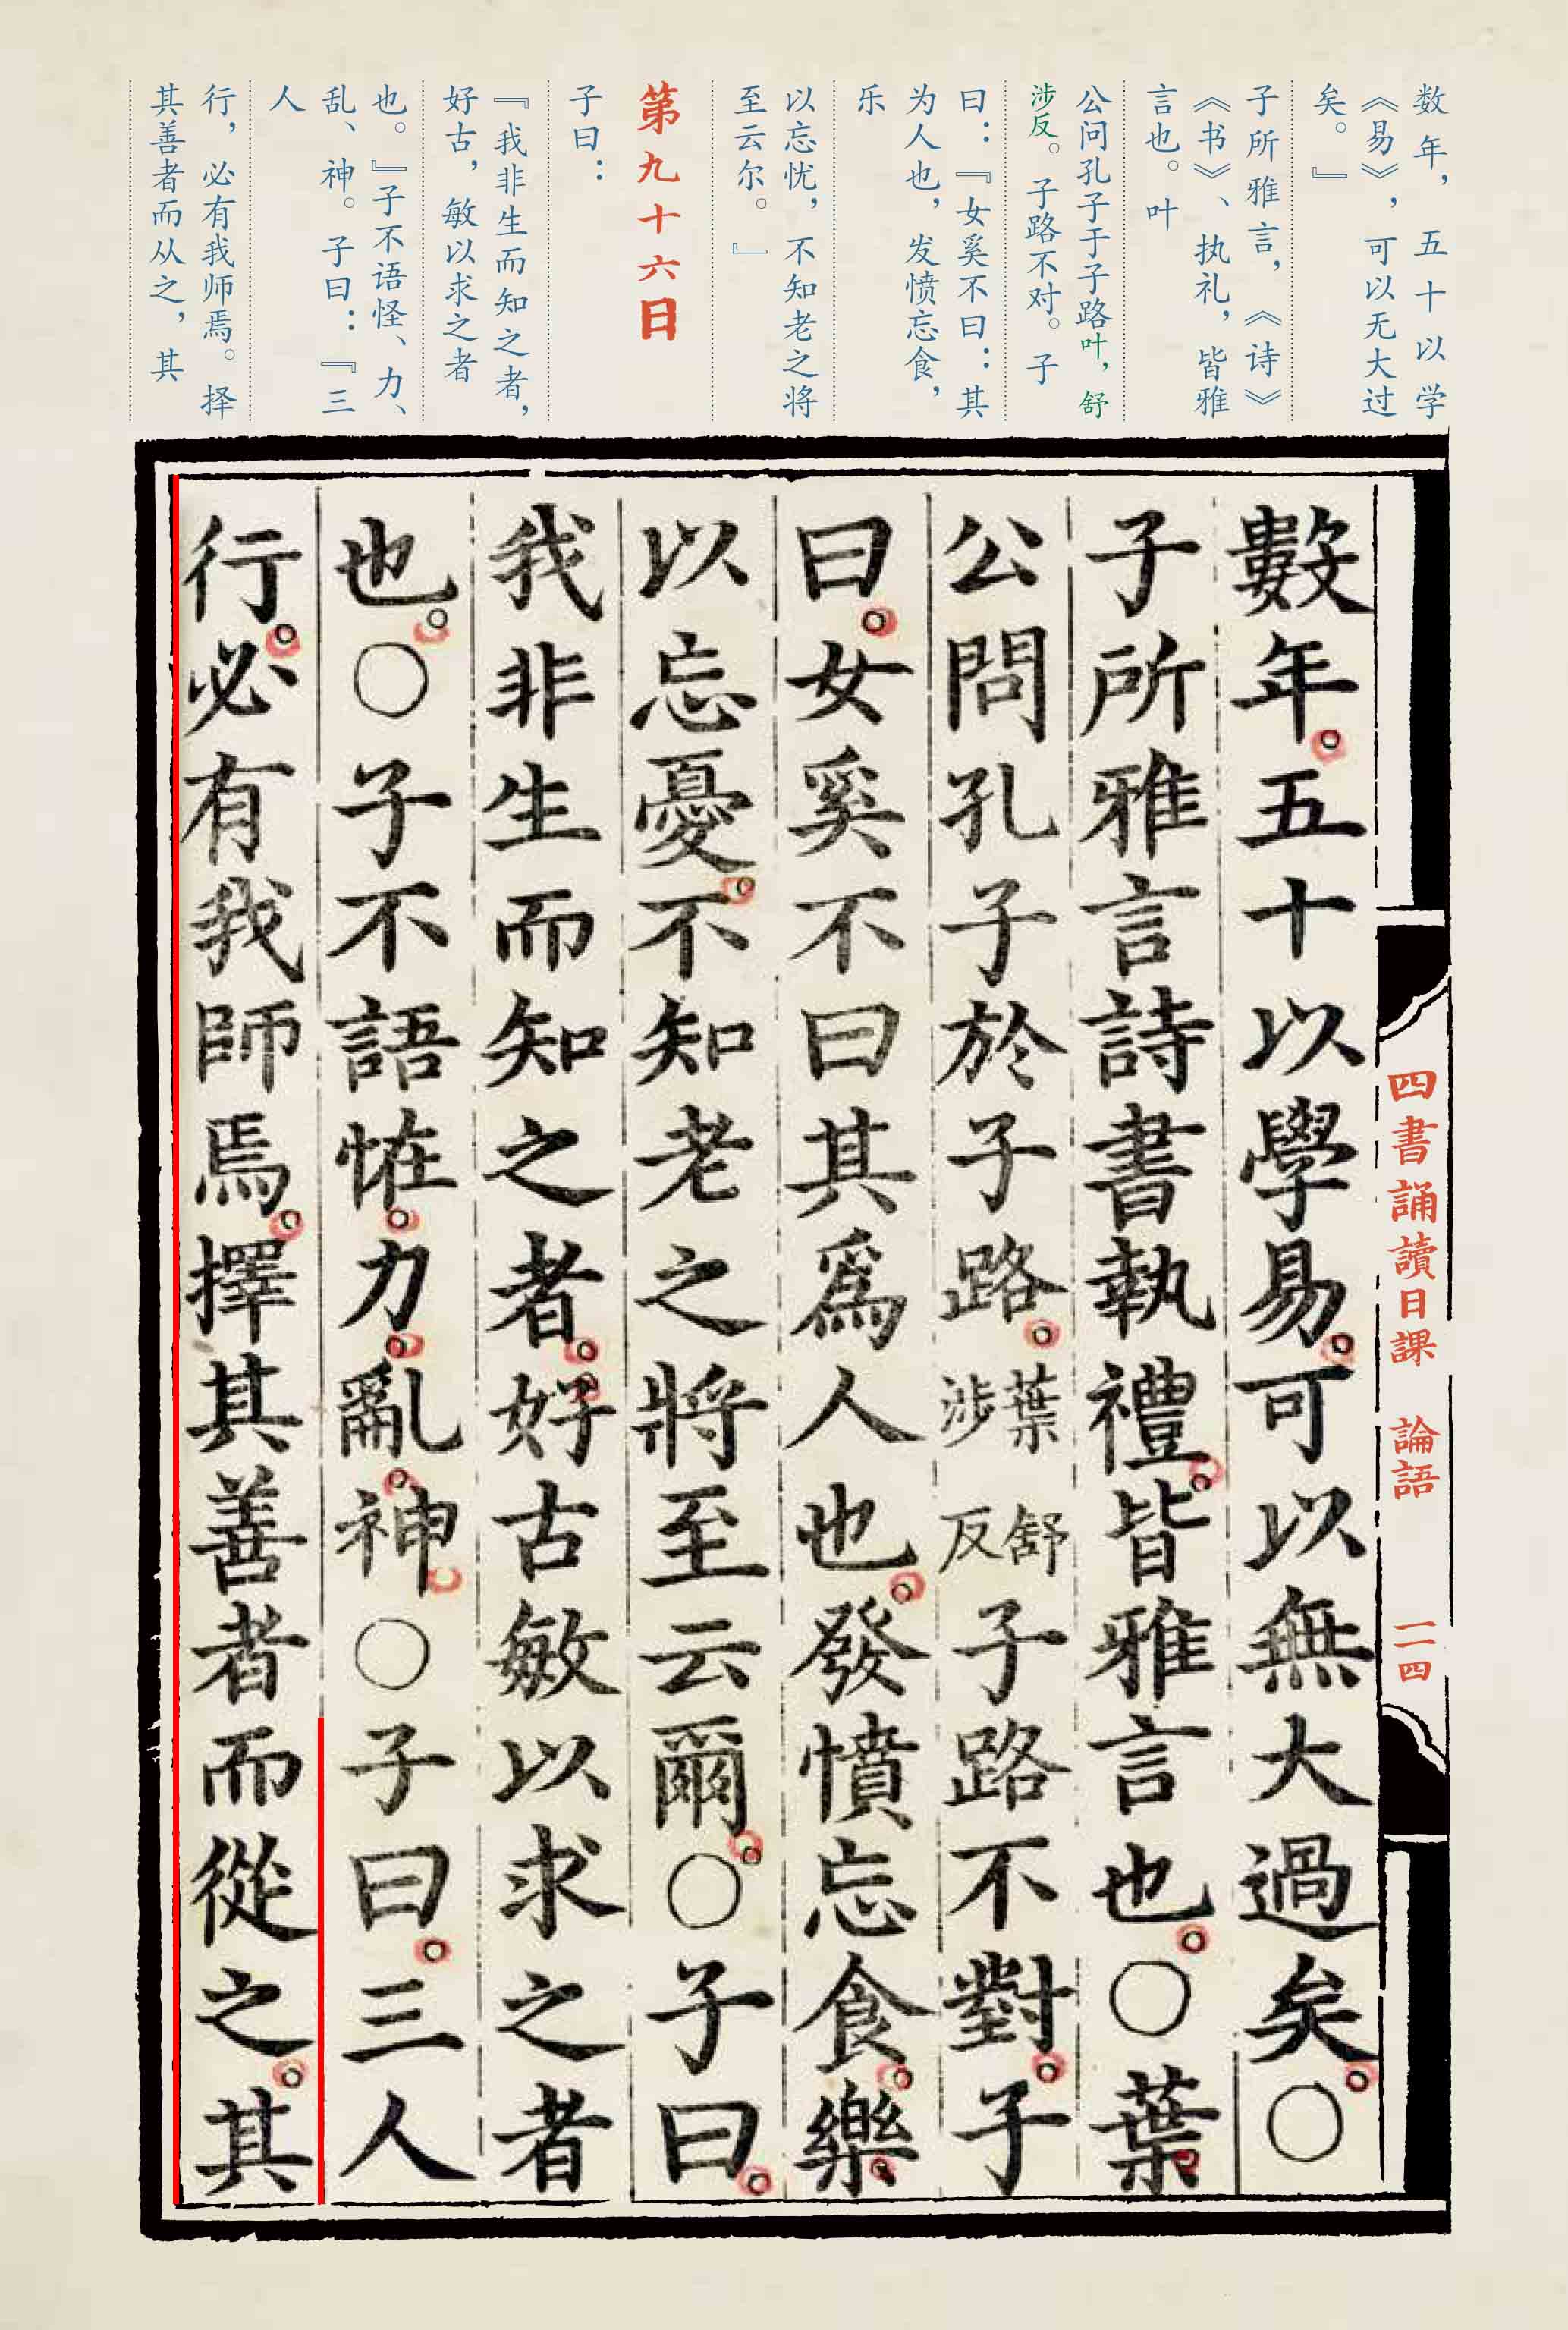 数年，五十以学
《易》，可以无大过
矣。』
子所雅言，《诗》
《书》、执礼，皆雅
言也。叶
公问孔子于子路叶，舒
涉反。子路不对。子
曰：『女奚不曰：其
为人也，发愤忘食，
乐
以忘忧，不知老之将
至云尔。』
第九十六日
子曰：
『我非生而知之者，
好古，敏以求之者
也。』子不语怪、力、
乱、神。子曰：『三
人
行，必有我师焉。择
其善者而从之，其
四書誦讀日課 論語 一一四
數年。五十以學易。可以無大過矣。〇
子所雅言詩書執禮。皆雅言也。〇葉
公問孔子於子路。葉舒涉反子路不對。子
曰。女奚不曰其爲人也。發憤忘食。樂
以忘憂。不知老之將至云爾。〇子曰。
我非生而知之者。好古敏以求之者
也。〇子不語恠。力。亂。神。〇子曰。三人
行。必有我師焉。擇其善者而從之。其